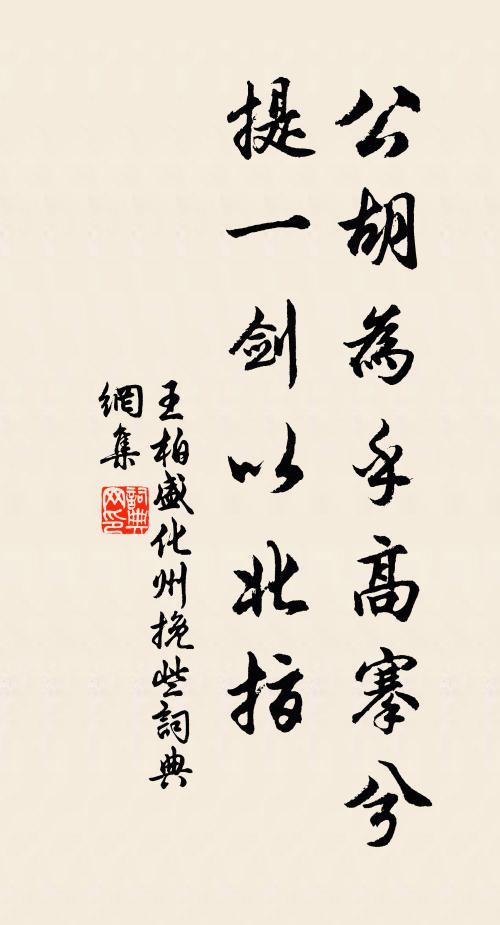 公胡為乎高搴兮
提一剑以北指
王柏盛化州挽些詞典
網集
詞典
网印